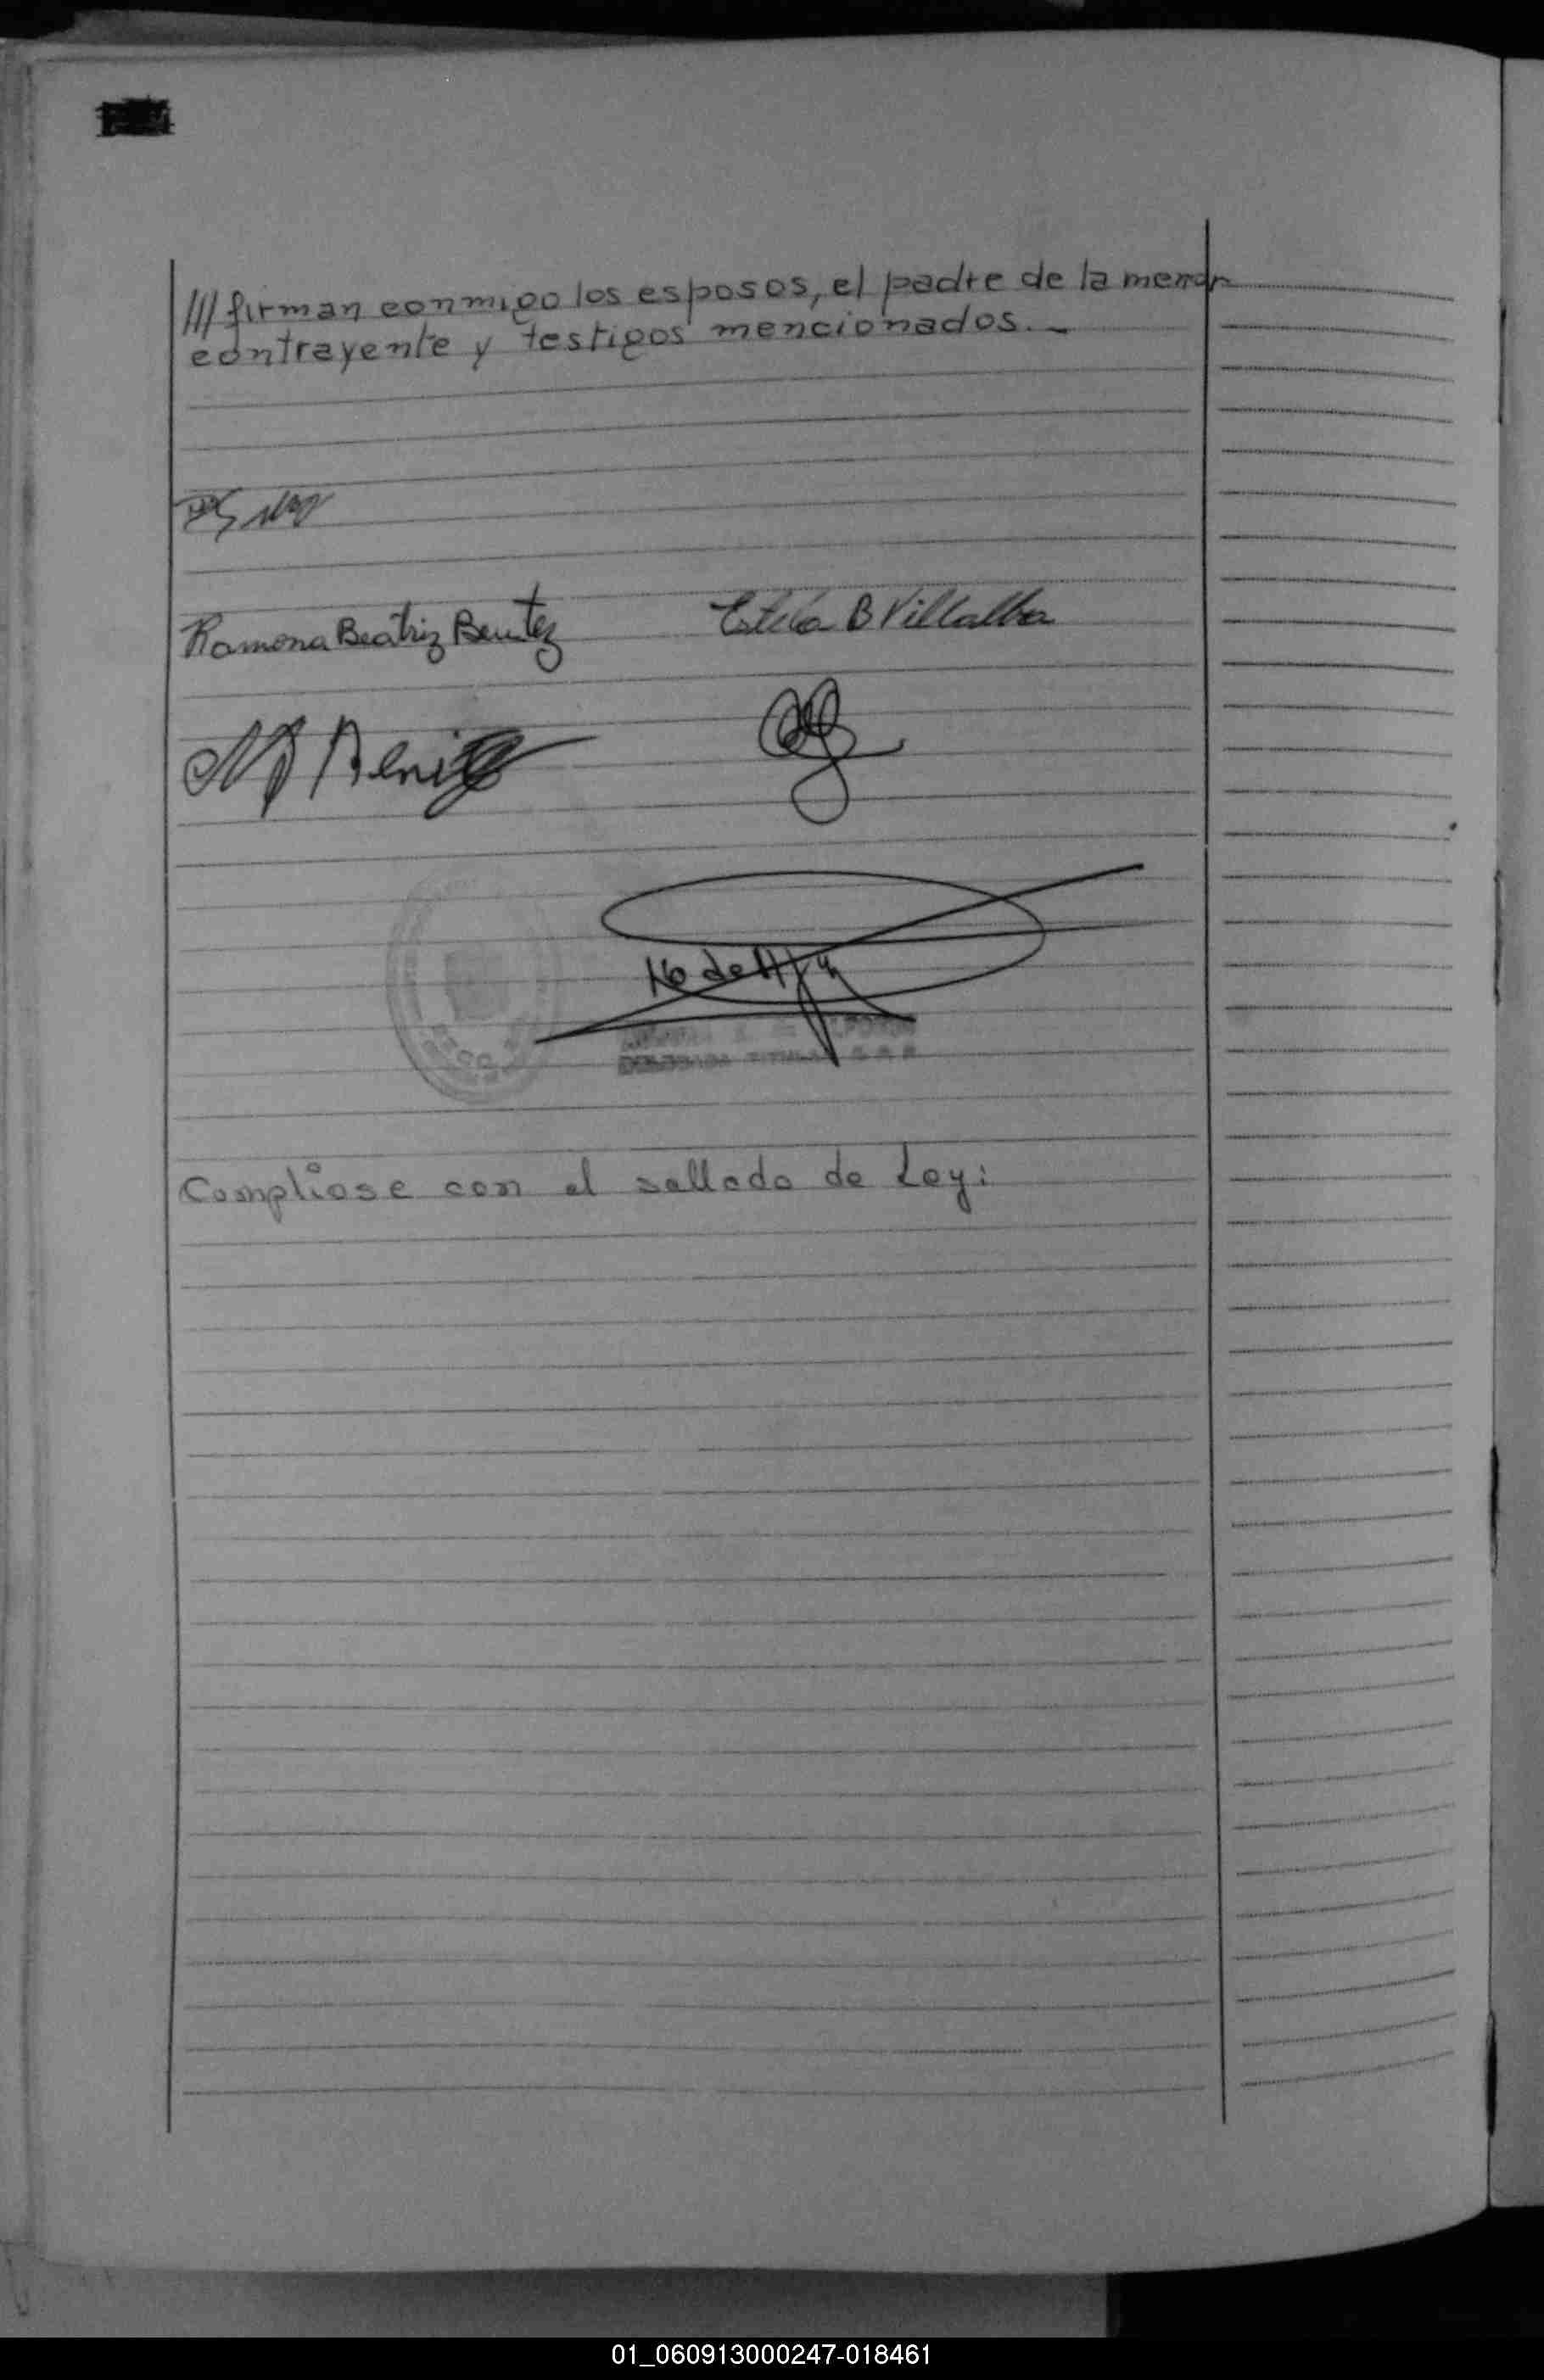 /// firman conmigo los esposos, el padre de la menor
contrayente y testigos mencionados. -
Ramona Beatriz Benitez
Estela B Villalba
Benitez
DELEGADA TITULAR
Compliose con el sellado de Ley:
01_060913000247-018461